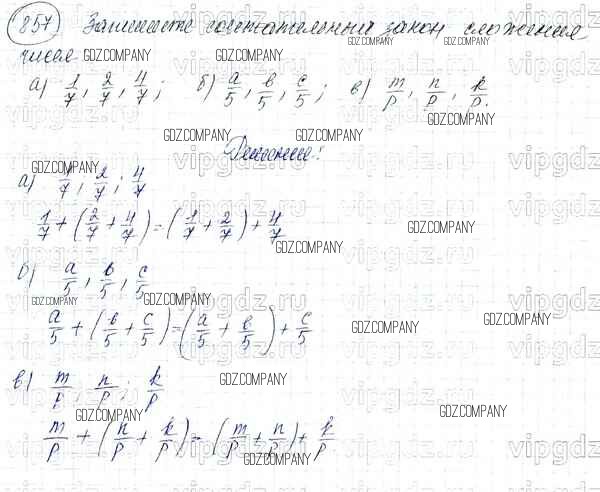 857 Запишите сочетательный закон сложения
чисел
а) 1/7, 2/7, 4/7; б) a/5, b/5, c/5; в) m/p, n/p, k/p.
Решение:
а) 1/7, 2/7; 4/7
1/7 + (2/7 + 4/7) = (1/7 + 2/7) + 4/7
б) a/5, b/5, c/5
a/5 + (b/5 + c/5) = (a/5 + b/5) + c/5
в) m/p, n/p; k/p
m/p + (n/p + k/p) = (m/p + n/p) + k/p
GDZ.COMPANY
vipgdz.ru